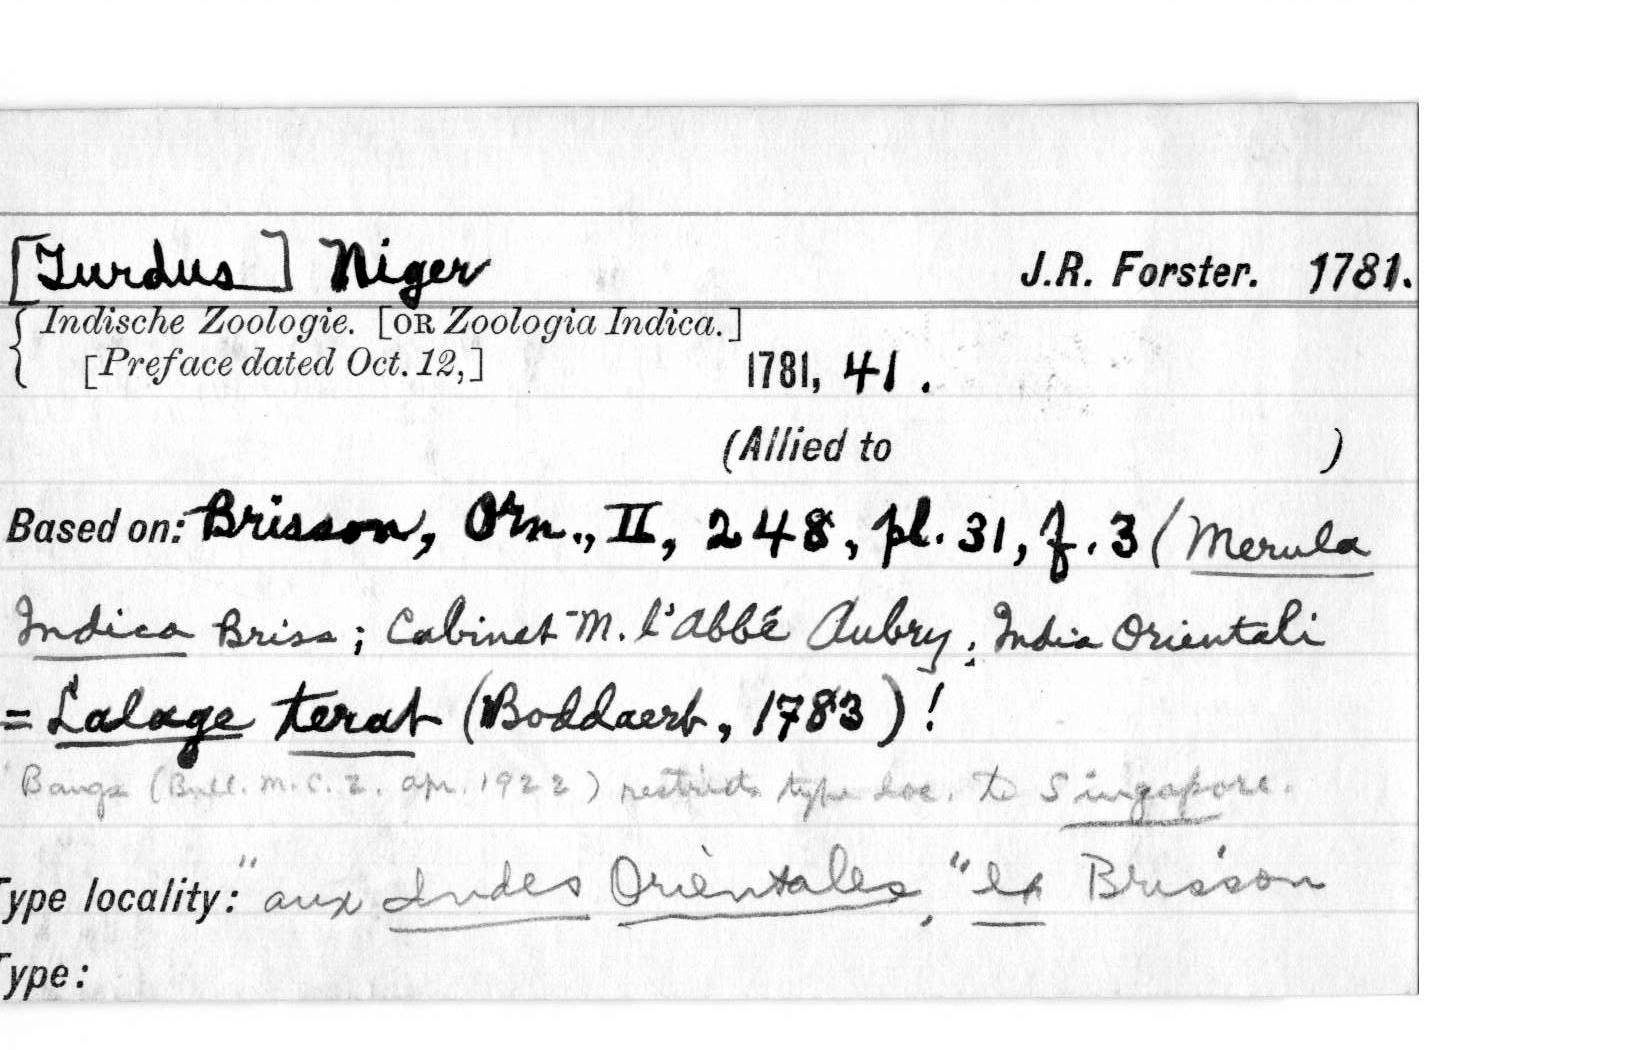 [Turdus] Niger J.R. Forster. 1781.
{ Indische Zoologie. [OR Zoologia Indica.]
[Preface dated Oct. 12,] 1781, 41.
(Allied to )
Based on: Brisson, Orn., II, 248, pl. 31, f. 3 (Merula
Indica Briss; Cabinet M. l'Abbé Aubry; India Orientali
= Lalage terat (Boddaert, 1783)!
Bangs (Bull. M.C.Z. Apr. 1922) restricts type loc. to Singapore.
Type locality: "aux Indes Orientales," ex Brisson
Type: